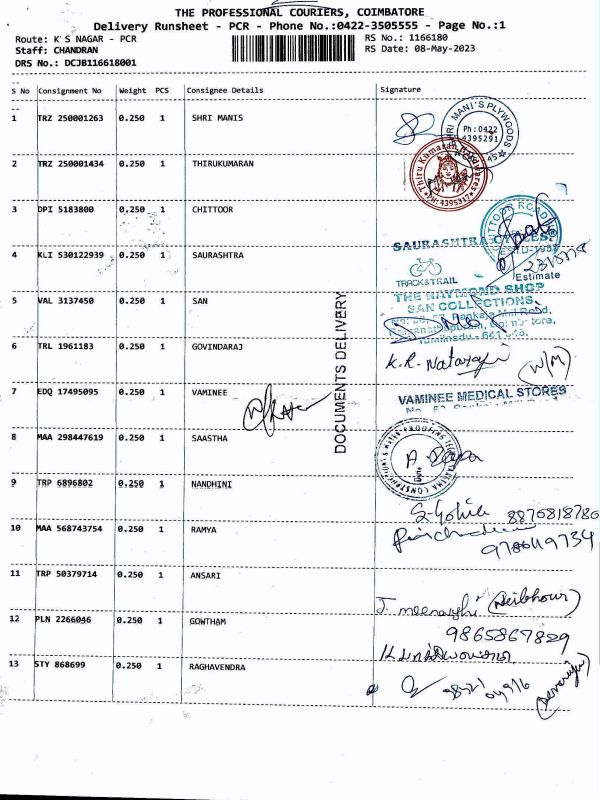 THE PROFESSIONAL COURIERS, COIMBATORE
Delivery Runsheet - PCR - Phone No.:0422-3505555 - Page No.:1
Route: K S NAGAR - PCR RS No.: 1166180
Staff: CHANDRAN RS Date: 08-May-2023
DRS No.: DCJB116618001
S No Consignment No Weight PCS Consignee Details Signature
1 TRZ 250001263 0.250 1 SHRI MANIS
SHRI MANI'S PLYWOODS
Ph: 0422
4395291
2 TRZ 250001434 0.250 1 THIRUKUMARAN
Thiru Kumaran Hardwares
PH: 4395317
3 DPI 5183800 0.250 1 CHITTOOR
SAURASHTRA CYCLES
4 KLI 530122939 0.250 1 SAURASHTRA
TRACK & TRAIL
Estimate
THE RAYMOND SHOP
5 VAL 3137450 0.250 1 SAN
SAN COLLECTIONS
Tamilnadu
6 TRL 1961183 0.250 1 GOVINDARAJ
K.R. Natarajan (W/M)
7 EDQ 17495095 0.250 1 VAMINEE
VAMINEE MEDICAL STORES
DOCUMENTS DELIVERY
8 MAA 298447619 0.250 1 SAASTHA
9 TRP 6896802 0.250 1 NANDHINI
8870818780
10 MAA 568743754 0.250 1 RAMYA
11 TRP 50379714 0.250 1 ANSARI
J. meenakshi (Neibhour)
12 PLN 2266046 0.250 1 GOWTHAM
9865867829
13 STY 868699 0.250 1 RAGHAVENDRA